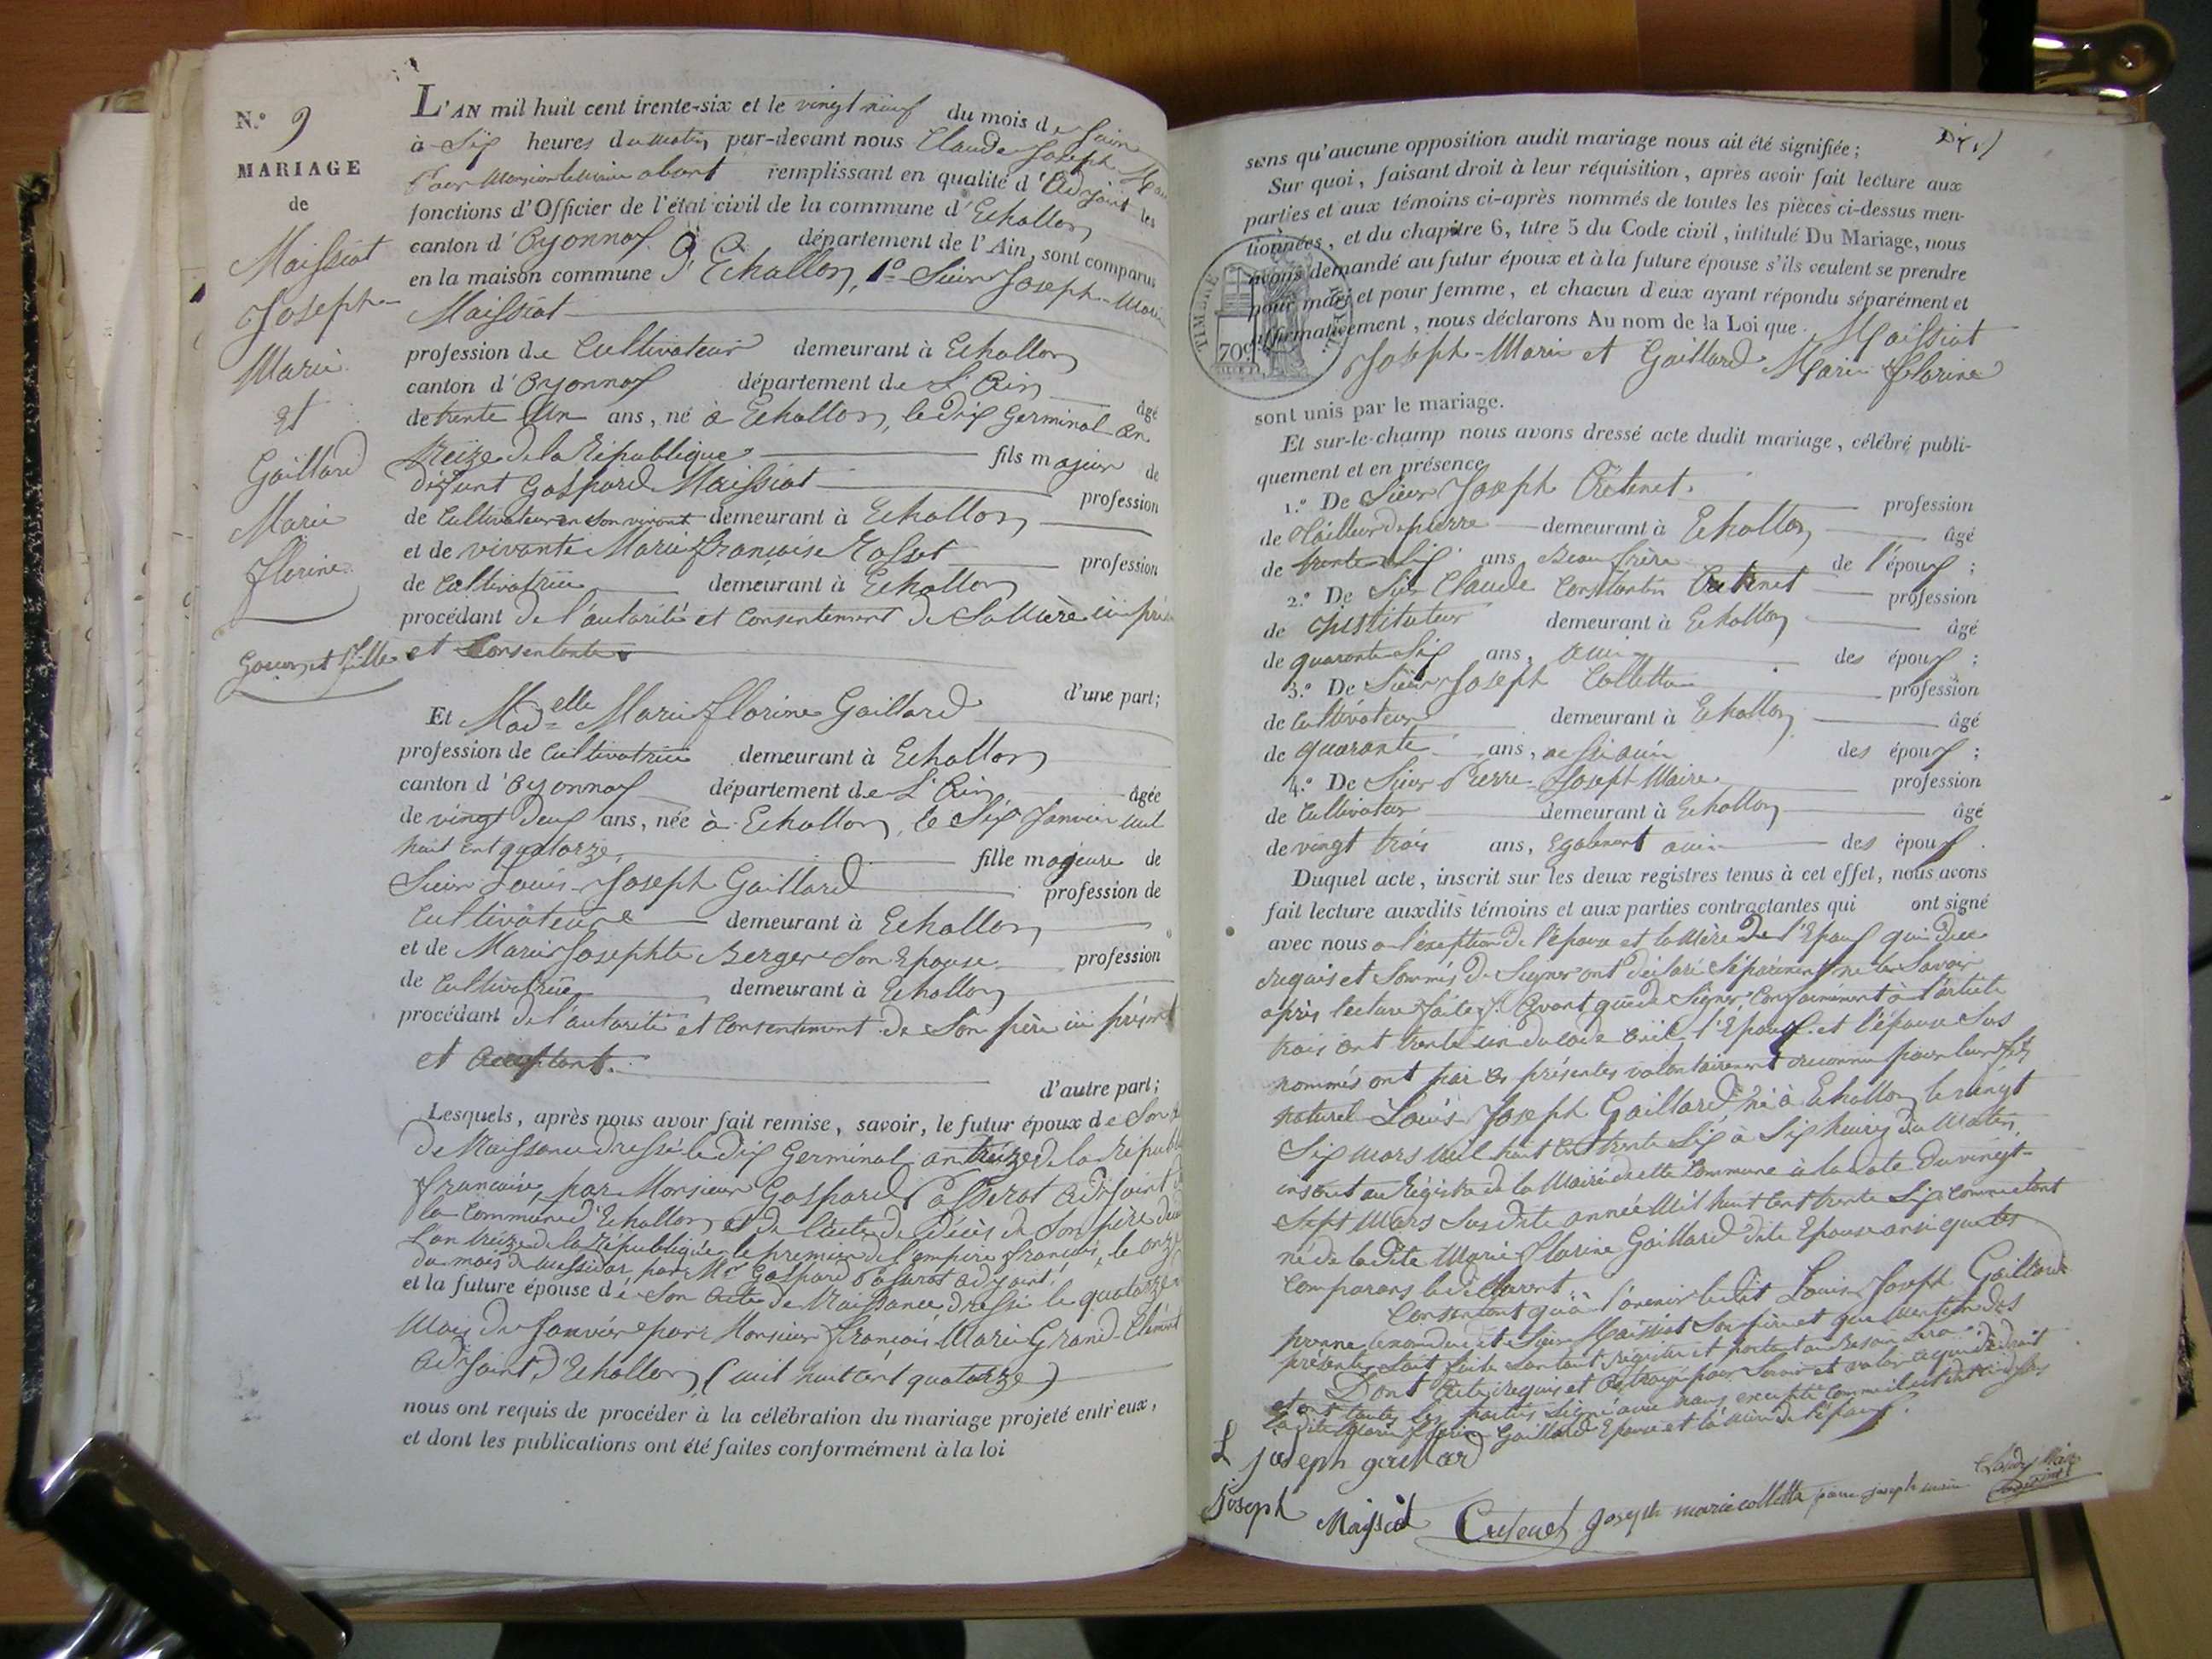 N.° 9
MARIAGE
de
Maissiat
Joseph-
Marie
et
Gaillard
Marie
florine
Garçon et fille
L'AN mil huit cent trente-six et le vingt neuf du mois de Juin
à Six heures du matin par-devant nous Claude Joseph
Pour Monsieur le Maire absent remplissant en qualité d'Adjoint les
fonctions d'Officier de l'état civil de la commune d'Echallon
canton d'Oyonnax département de l'Ain, sont comparus
en la maison commune d'Echallon, 1° Sieur Joseph-Marie
Maissiat
profession de Cultivateur demeurant à Echallon
canton d'Oyonnax département de L'Ain âgé
de trente Un ans, né à Echallon, le dix Germinal an
treize de la République fils majeur de
défunt Gaspard Maissiat profession
de Cultivateur en son vivant demeurant à Echallon
et de vivante Marie françoise profession
de Cultivatrice demeurant à Echallon
procédant de l'autorité et consentement de Sa Mère ici
et Consentente
d'une part;
Et Mad.elle Marie florine Gaillard
profession de Cultivatrice demeurant à Echallon
canton d'Oyonnax département de L'Ain âgée
de vingt deux ans, née à Echallon, le Six Janvier mil
huit cent quatorze, fille majeure de
Sieur Louis-Joseph Gaillard profession de
Cultivateur demeurant à Echallon
et de Marie Josephte Berger Son Epouse profession
de Cultivatrice demeurant à Echallon
procédant de l'autorité et consentement de Son père ici présent
et acceptant.
d'autre part;
Lesquels, après nous avoir fait remise, savoir, le futur époux de Son
de Naissance dressé le dix Germinal an treize de la
francaise, par Monsieur Gaspard Passerat Adjoint
la Commune d'Echallon, et de l'acte de Décès de Son père
L'an treize de la République, le premier de l'empire français, le onze
du mois de Messidor, par Mr Gaspard Passerat adjoint,
et la future épouse de Son acte de Naissance dressé le quatorze
Mois de Janvier par Monsieur François Marie Grand-Clément
Adjoint d'Echallon, (mil huit cent quatorze)
nous ont requis de procéder à la célébration du mariage projeté entr'eux,
et dont les publications ont été faites conformément à la loi
sans qu'aucune opposition audit mariage nous ait été signifiée;
Sur quoi, faisant droit à leur réquisition, après avoir fait lecture aux
parties et aux témoins ci-après nommés de toutes les pièces ci-dessus men-
tionnées, et du chapitre 6, titre 5 du Code civil, intitulé Du Mariage, nous
avons demandé au futur époux et à la future épouse s'ils veulent se prendre
pour mari et pour femme, et chacun d'eux ayant répondu séparément et
affirmativement, nous déclarons Au nom de la Loi que Maissiat
Joseph-Marie et Gaillard Marie florine
TIMBRE
70c
sont unis par le mariage.
Et sur-le-champ nous avons dressé acte dudit mariage, célébré publi-
quement et en présence
1.° De Sieur Joseph Crétenet. profession
de tailleur de pierre demeurant à Echallon âgé
de trente Six ans, Beau frère de l'époux;
2.° De Sieur Claude Constantin Cretenet profession
de Instituteur demeurant à Echallon âgé
de quarante Six ans, ami des époux;
3.° De Sieur Joseph Colletta profession
de Cultivateur demeurant à Echallon âgé
de quarante ans, aussi ami des époux;
4.° De Sieur Pierre Joseph Maire profession
de Cultivateur demeurant à Echallon âgé
de vingt trois ans, également ami des époux.
Duquel acte, inscrit sur les deux registres tenus à cet effet, nous avons
fait lecture auxdits témoins et aux parties contractantes qui ont signé
avec nous à l'exeption de l'épouse et la Mère de l'Epoux qui de ce
requis et Sommés de Signer ont déclaré Séparément ne le Savoir
après lecture faite. Avant que de Signer, Conformément à l'article
trois cent trente un du code civil, l'Epoux et l'épouse Sus
nommés ont par ces présentes volontairement reconnu pour leur fils
naturel Louis Joseph Gaillard né à Echallon le vingt
Six mars mil huit cent trente Six à Six heures du Matin,
inscrit au Registre de la Mairie de cette Commune à la date du vingt-
Sept Mars Susdite année Mil huit Cent trente Six, comme étant
né de la dite Marie Florine Gaillard dite Epouse ainsi que les
Comparans le déclarent.
Consentant qu'à l'avenir ledit Louis Joseph Gaillard
prenne le nom dudit Sieur Maissiat Son père et que mention des
présentes Soit faite Sur tout registre et partout ou besoin Sera.
Dont Acte, requis et octroyé pour Servir et valoir ce que de droit
et ont toutes les parties Signé avec nous excepté comme il est dit
la dite Marie Florine Gaillard Epouse et la Mère de l'époux.
L Joseph gaillard
Joseph Maissiat Cretenet Joseph marie colletta pierre joseph maire